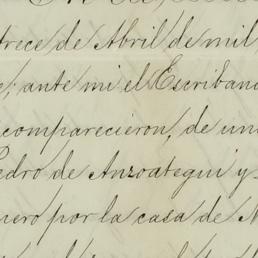 trece de Abril de mil
; ante mi el Escriban
comparecieron, de un
edro de Anzoategui y
nero por la casa de